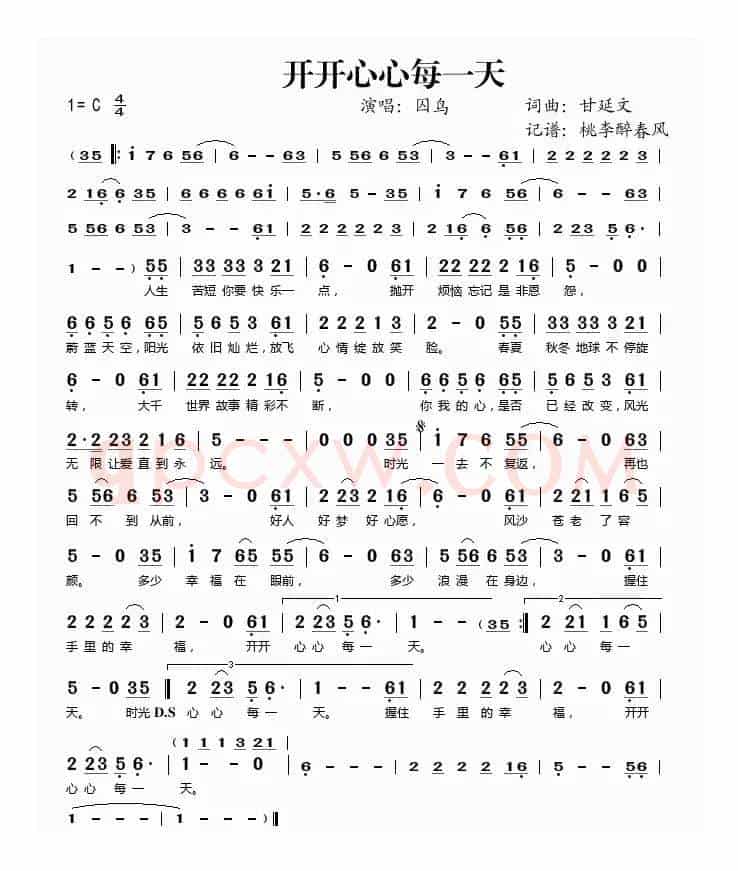 开开心心每一天
1= C 4/4 演唱：囚鸟 词曲：甘延文
记谱：桃李醉春风
(35 ‖: i 7 6 56 | 6 - - 63 | 5 56 6 53 | 3 - - 61 | 2 2 2 2 23 |
2 16 6 35 | 6 6 6 6 6i | 5·6 5 - 35 | i 7 6 56 | 6 - - 63 |
5 56 6 53 | 3 - - 61 | 2 2 2 2 23 | 2 16 6 56 | 2 23 5 6· |
1 - - ) 55 | 33 33 3 21 | 6 - 0 61 | 22 22 2 16 | 5 - 0 0 |
人生 苦短你要 快乐一 点， 抛开 烦恼忘记是非恩 怨，
6 6 5 6 65 | 5 6 5 3 61 | 2 2 2 1 3 | 2 - 0 55 | 33 33 3 21 |
蔚蓝天空，阳光 依旧灿烂，放飞 心情绽放笑 脸。 春夏 秋冬地球不停旋
6 - 0 61 | 22 22 2 16 | 5 - 0 0 | 6 6 5 6 65 | 5 6 5 3 61 |
转， 大千 世界故事精彩不 断， 你我的心，是否 已经改变，风光
2·2 23 2 1 6 | 5 - - - | 0 0 0 35 | i 7 6 55 | 6 - 0 63 |
无限让爱直到永 远。 时光 一去不复返， 再也
5 56 6 53 | 3 - 0 61 | 2 23 2 16 | 6 - 0 61 | 2 21 1 65 |
回不到从前， 好人 好梦好心愿， 风沙 苍老了容
5 - 0 35 | i 7 65 55 | 6 - 0 63 | 5 56 6 53 | 3 - 0 61 |
颜。 多少 幸福在眼前， 多少 浪漫在身边， 握住
2 2 2 2 23 | 2 - 0 61 | 2 23 5 6· | 1 - - (35 :‖ 2 21 1 65 |
1. 2.
手里的幸 福， 开开 心心每一 天。 心心每一
3.
5 - 0 35 ‖ 2 23 5 6· | 1 - - 61 | 2 2 2 2 23 | 2 - 0 61 |
天。 时光D.S 心心每一 天。 握住 手里的幸 福， 开开
(1 1 1 3 21
2 23 5 6· | 1 - - 0 | 6 - - - | 2 2 2 2 16 | 5 - - 56 |
心心每一 天。
1 - - - | 1 - - - )‖
qpcxw.com